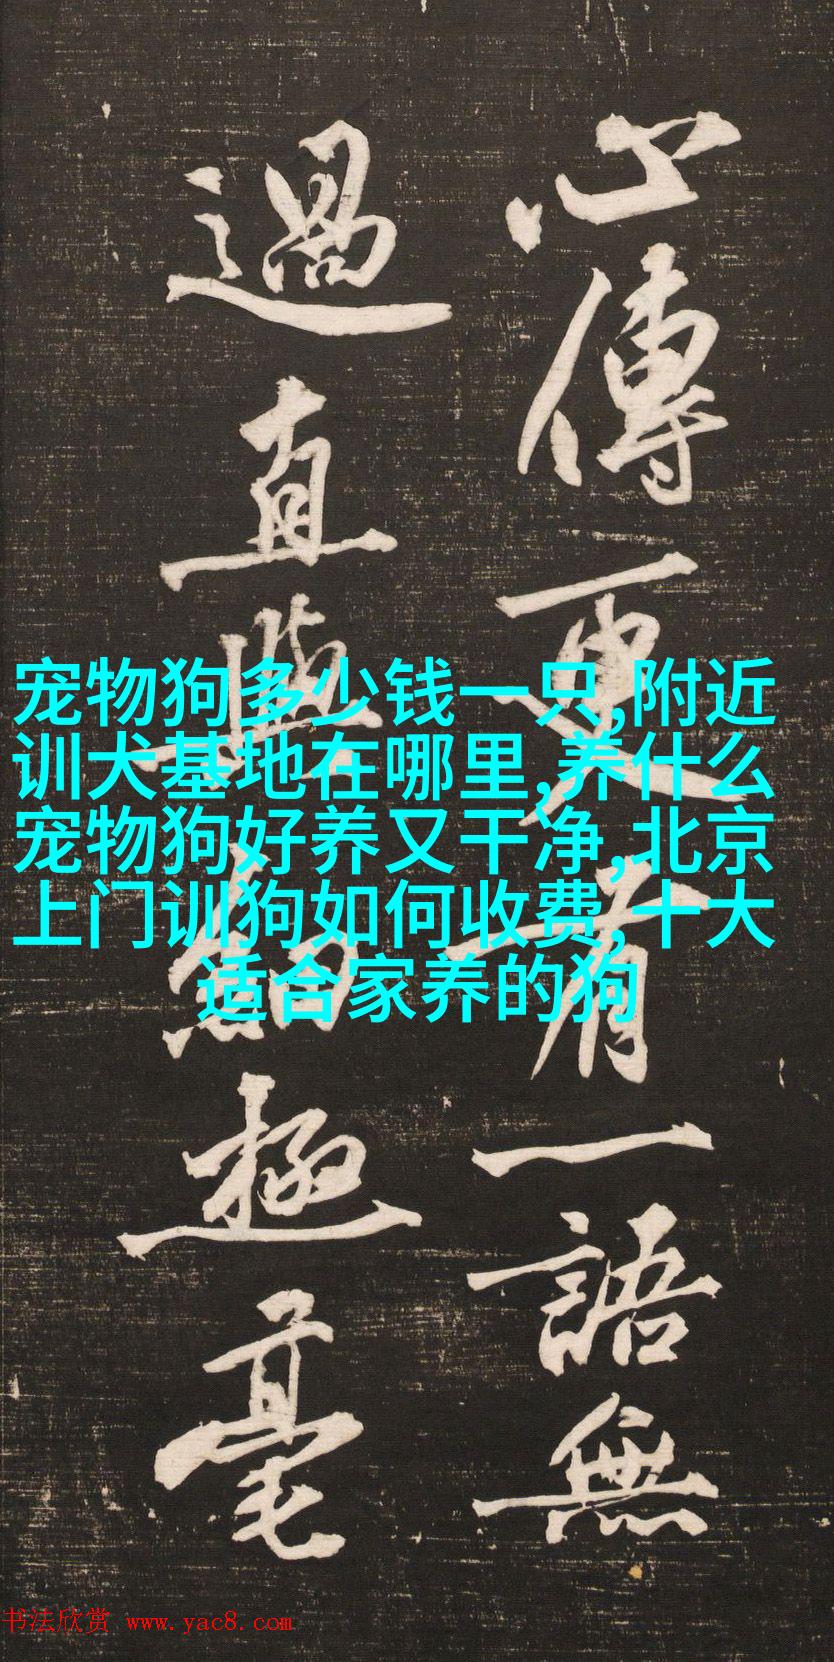 心傳更有一語無
過直與鉤極毫
宠物狗多少钱一只,附近
训犬基地在哪里,养什么
宠物狗好养又干净,北京
上门训狗如何收费,十大
适合家养的狗
书法欣赏 www.yac8.com